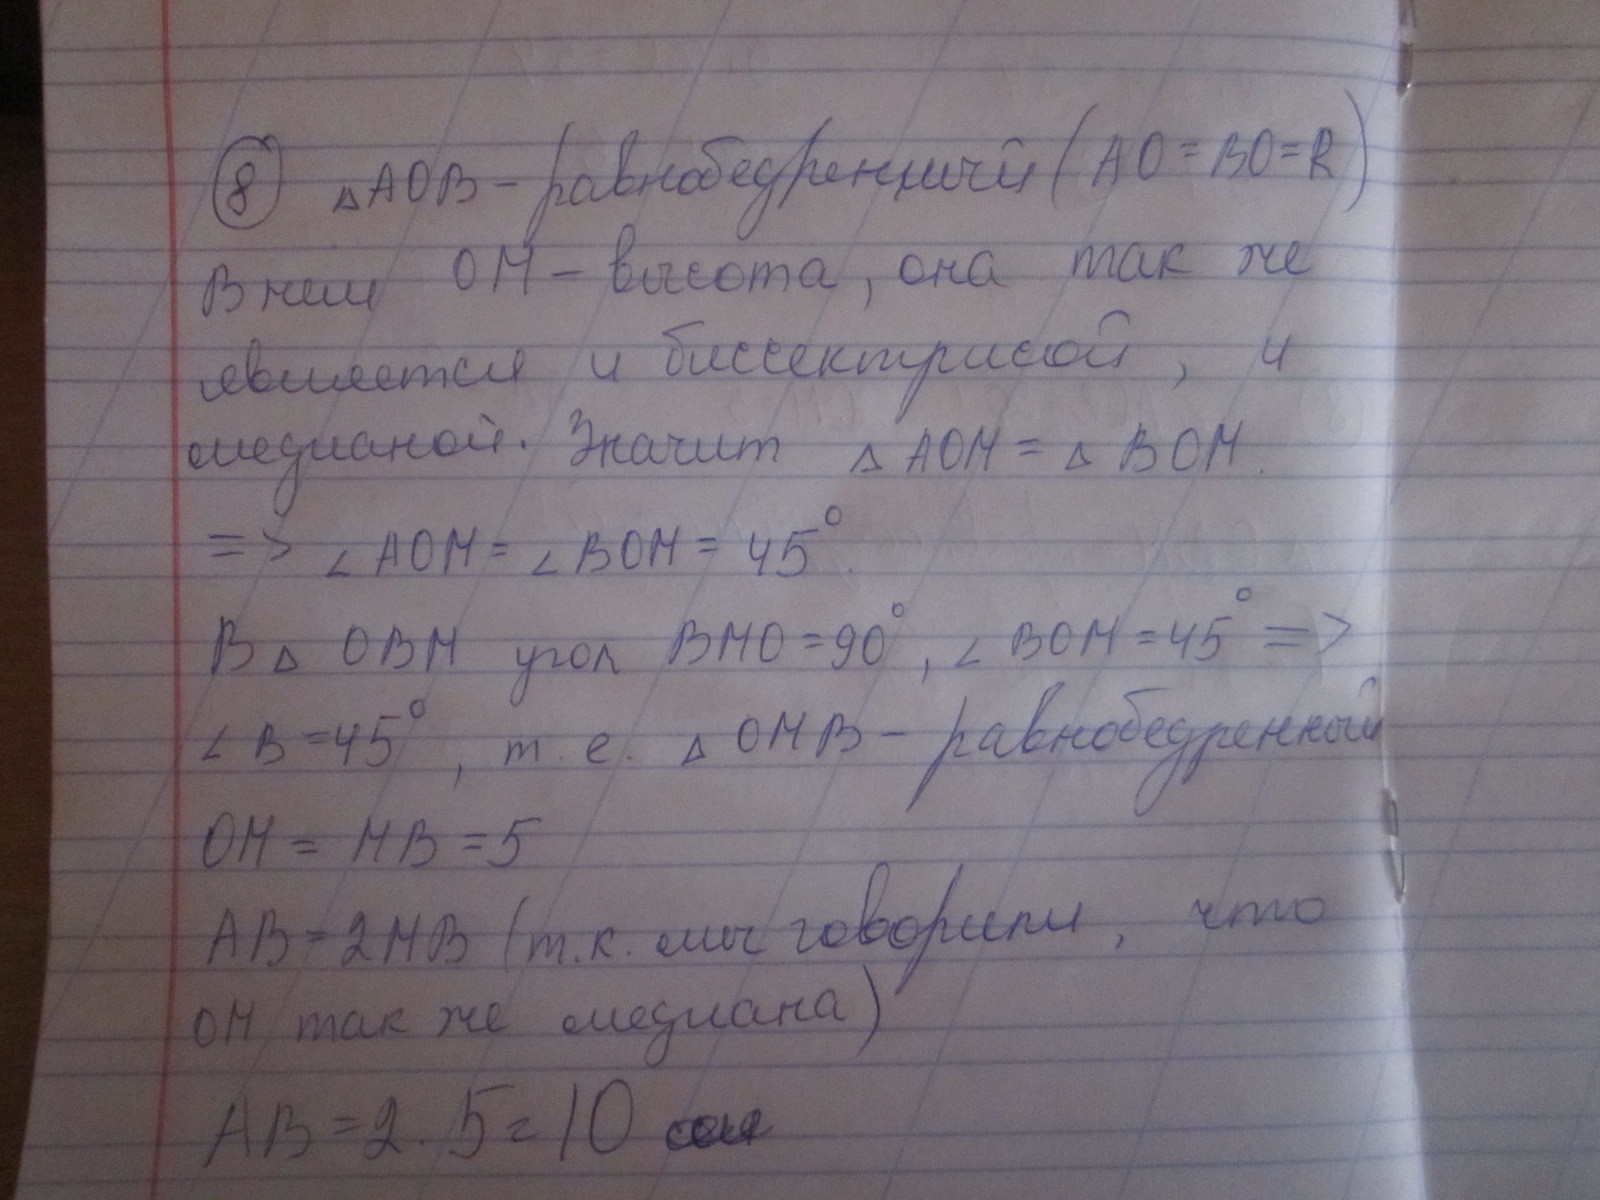 8 △AOB – равнобедренный (AO = BO = R)
В нем OM – высота, она так же
является и биссектрисой, и
медианой. Значит △ AOM = △ BOM.
=> ∠AOM = ∠BOM = 45°.
В △ OBM угол BMO = 90°, ∠BOM = 45° =>
∠B = 45°, т.е. △ OMB – равнобедренный
OM = MB = 5
AB = 2MB (т.к. мы говорили, что
OM так же медиана)
AB = 2 . 5 = 10 см